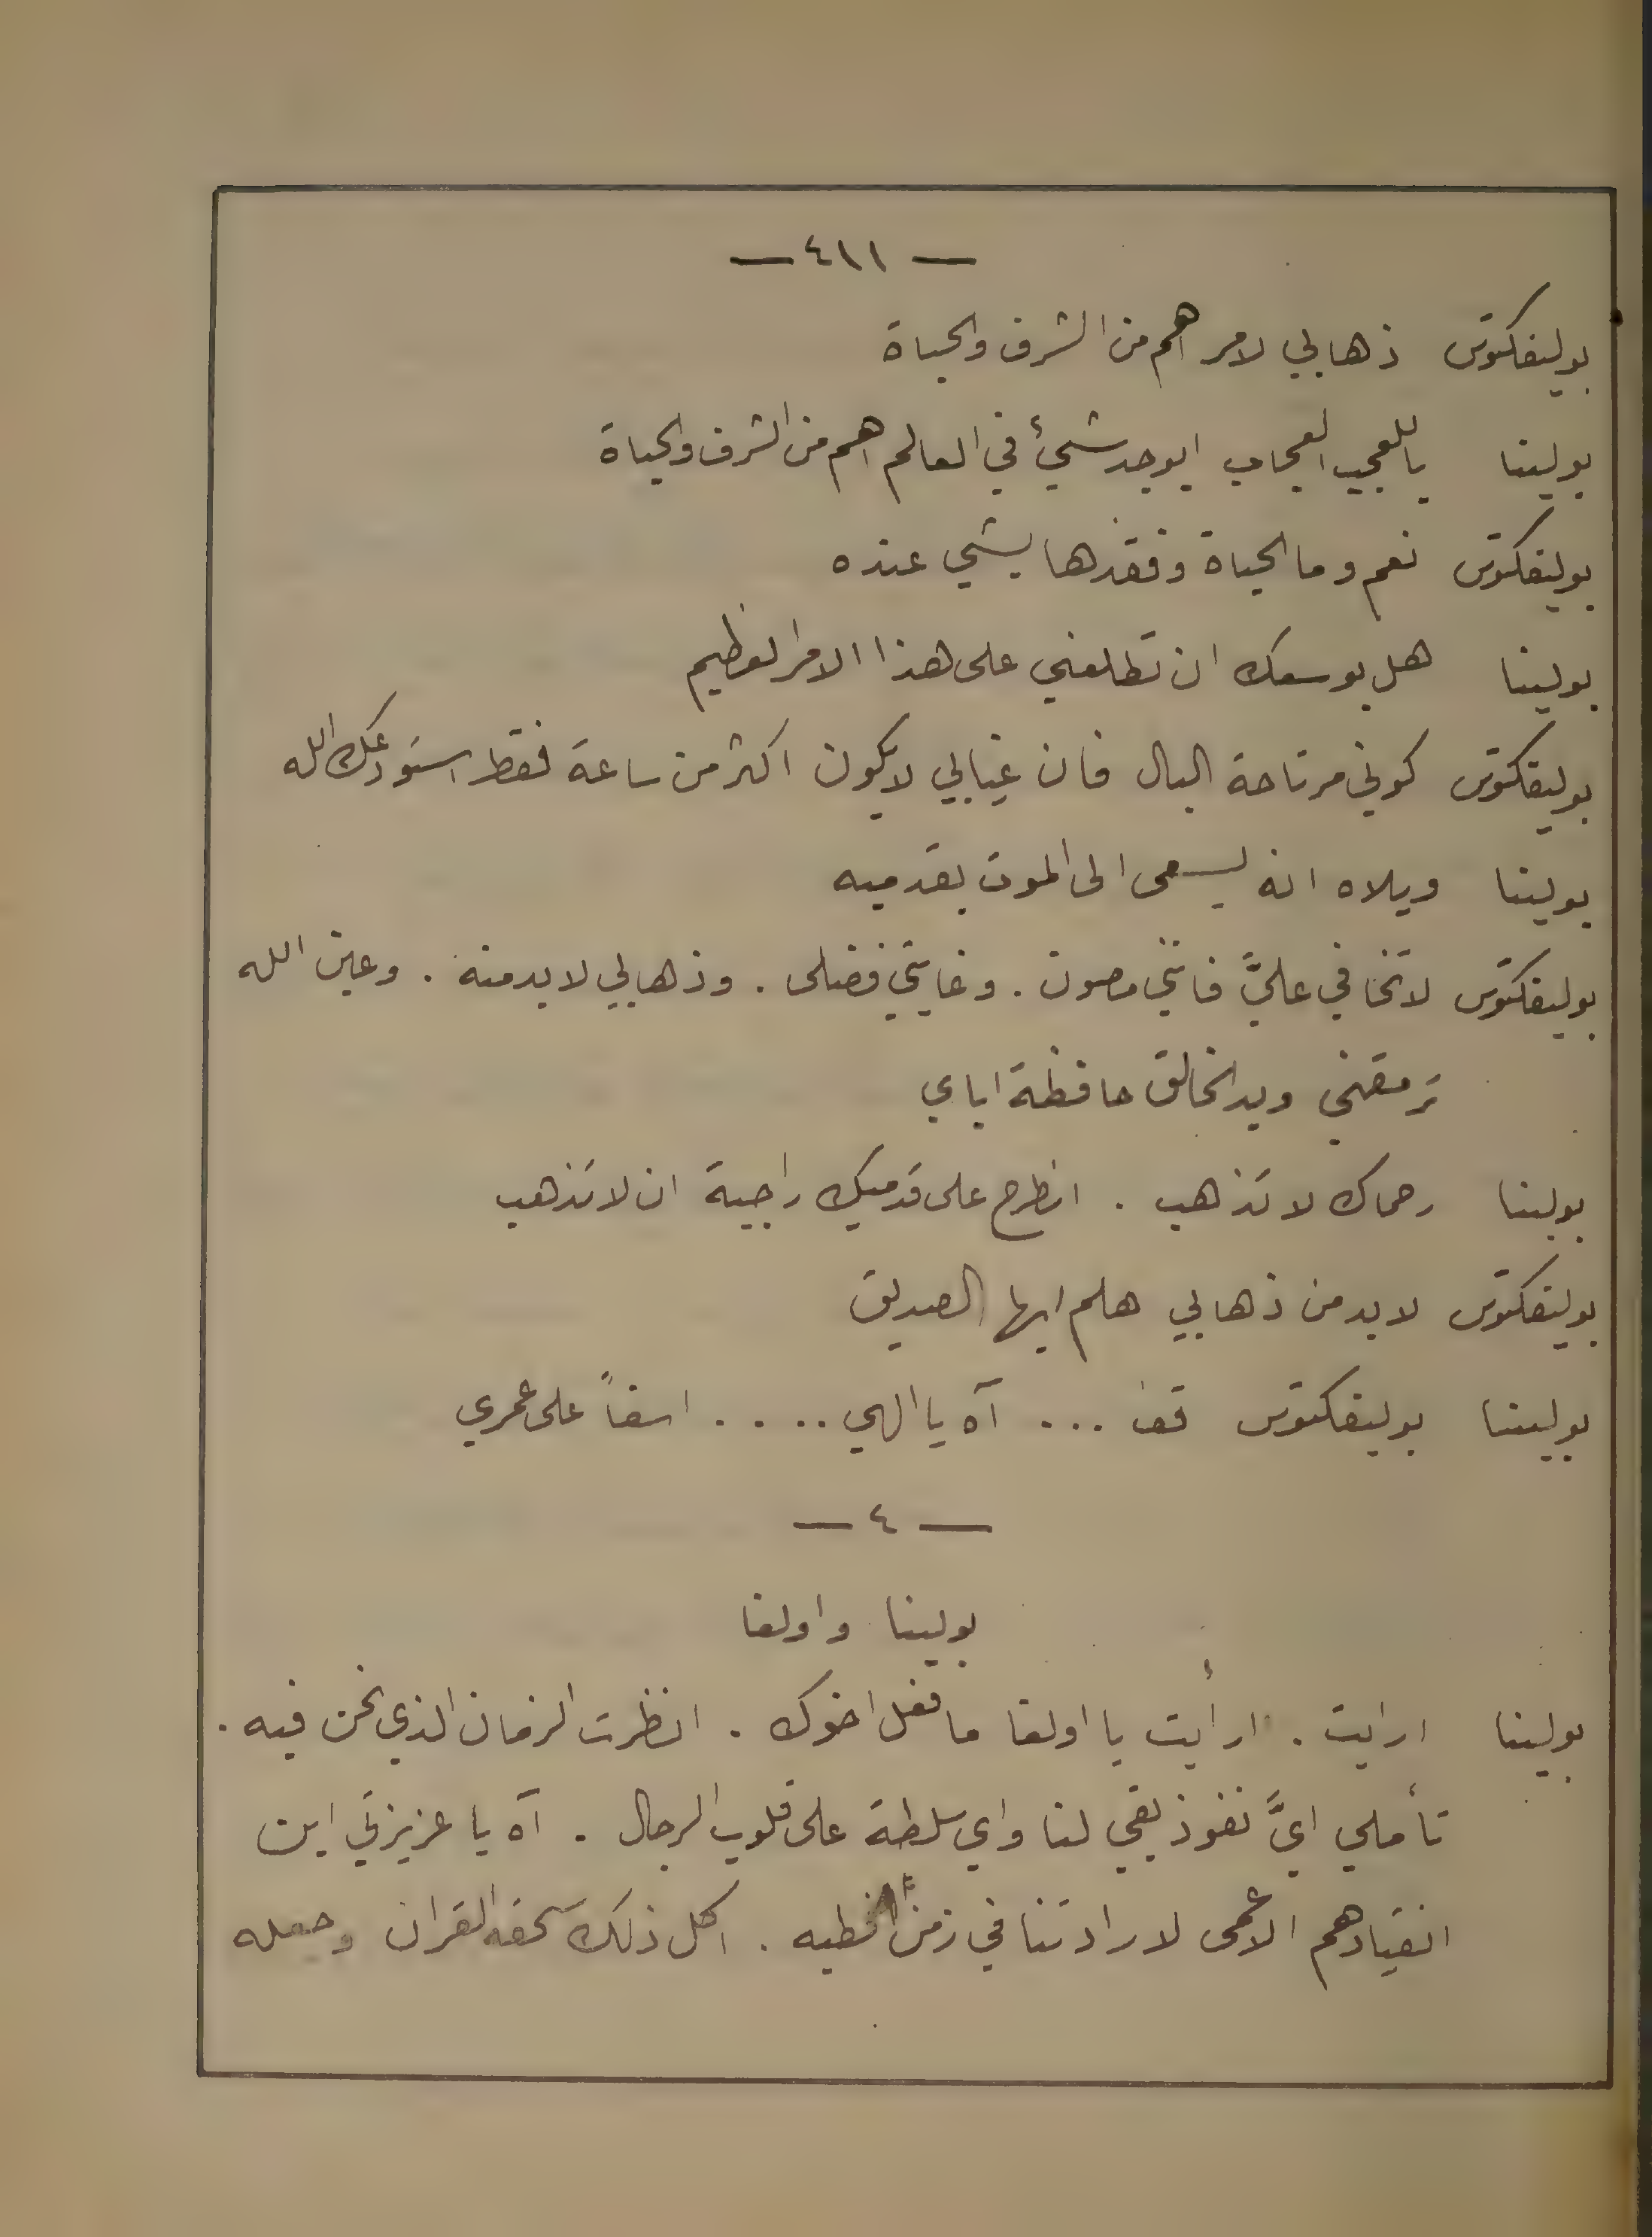 — ٤١١ —
بوليفكتوس ذهابي لامر اهم من الشرف والحياة
بولينا ياللعجب العجاب ايوجد شيءٌ في العالم اهم من الشرف والحياة
بوليفكتوس نعم وما الحياة وفقدها بشي عنده
بولينا هل بوسعك ان تطلعني على هذا الامر العظيم
بوليفكتوس كوني مرتاحة البال فان غيابي لا يكون اكثر من ساعة فقط استودعك الله
بولينا ويلاه انه ليسعى الى الموت بقدميه
بوليفكتوس لا تخافي عليَّ فانني مصون . وغايتي فضلى . وذهابي لا بد منه . وعين الله
ترمقني ويد الخالق حافظة اياي
بولينا رحماك لا تذهب . انطرح على قدميك راجية ان لا تذهب
بوليفكتوس لا بد من ذهابي هلم ايها الصديق
بولينا بوليفكتوس قف ... آه يا الهي .... اسفاً على عمري
— ٤ —
بولينا واولفا
بولينا ارايت . ارأيت يا اولفا ما فعل اخوك . انظرت الزمان الذي نحن فيه .
تأملي ايَّ نفوذ بقي لنا واي سلطة على قلوب الرجال . آه يا عزيزتي اين
انقيادهم الاعمى لارادتنا في زمن الخطبه . اكل ذلك سحقه القران وجعله